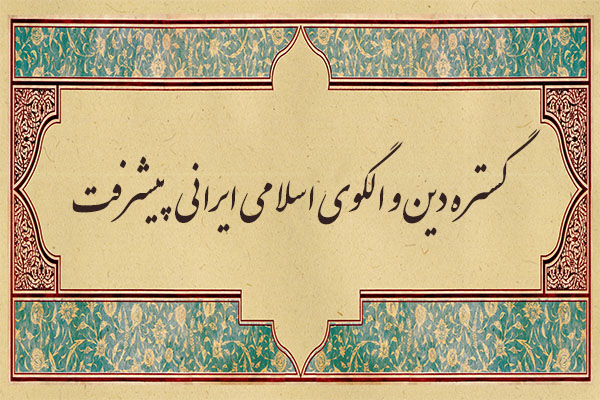 گستره دین و الگوی اسلامی ایرانی پیشرفت